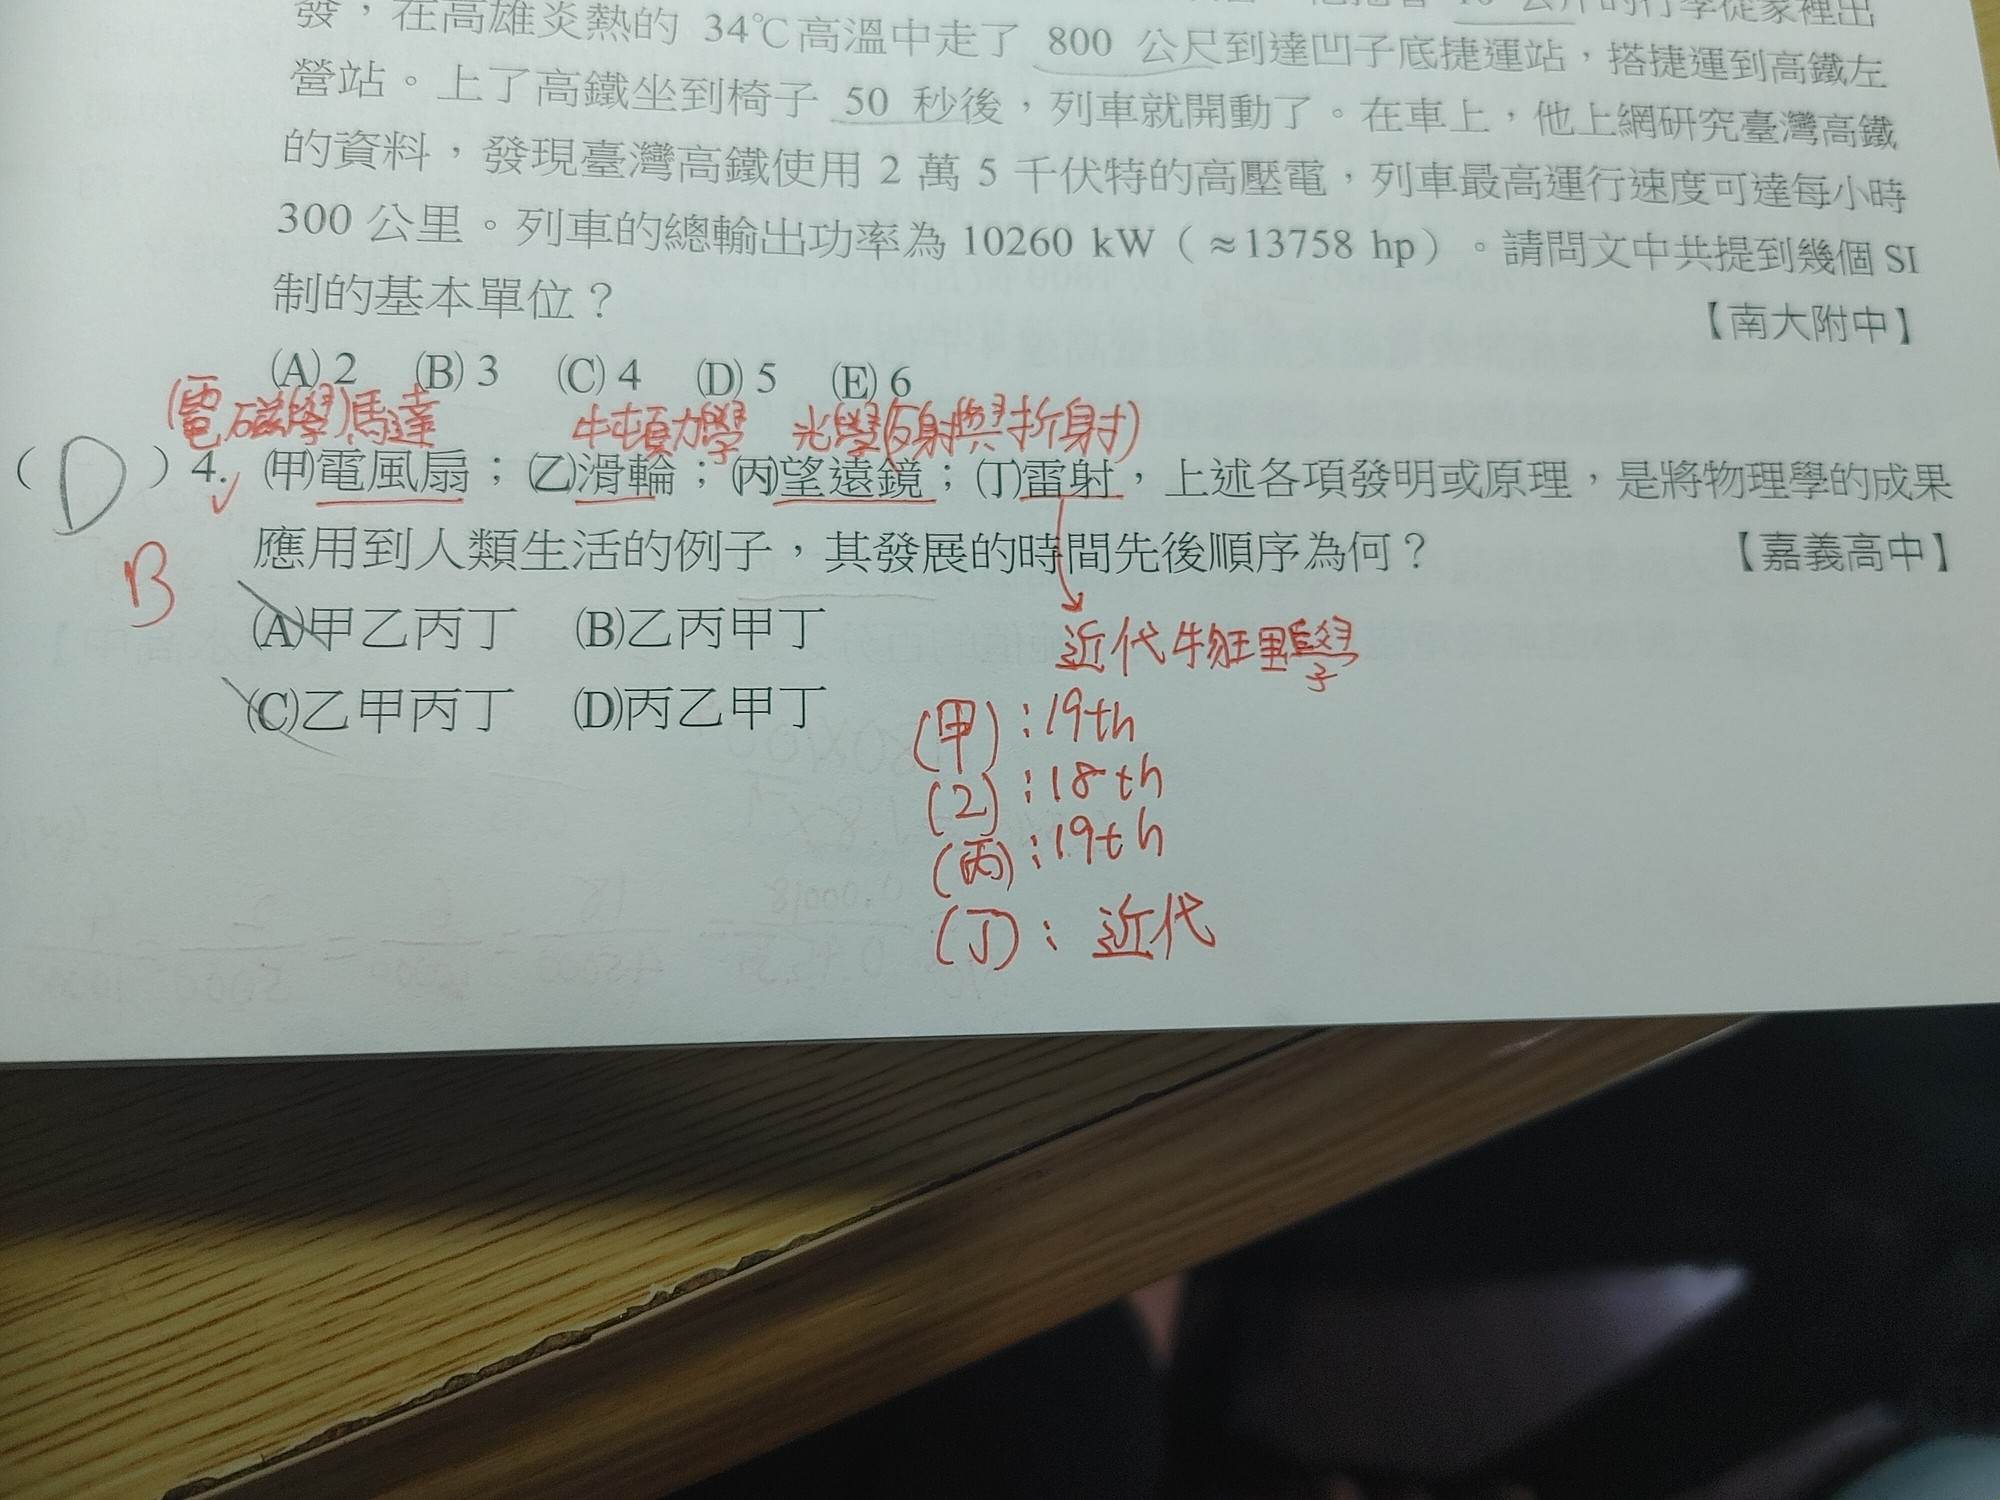 發，在高雄炎熱的 34℃高溫中走了 800 公尺到達凹子底捷運站，搭捷運到高鐵左
營站。上了高鐵坐到椅子 50 秒後，列車就開動了。在車上，他上網研究臺灣高鐵
的資料，發現臺灣高鐵使用 2 萬 5 千伏特的高壓電，列車最高運行速度可達每小時
300 公里。列車的總輸出功率為 10260 kW（≈13758 hp）。請問文中共提到幾個 SI
制的基本單位？
【南大附中】
(A) 2 (B) 3 (C) 4 (D) 5 (E) 6
(電磁學)馬達 牛頓力學 光學(反射與折射)
（D）4. (甲)電風扇；(乙)滑輪；(丙)望遠鏡；(丁)雷射，上述各項發明或原理，是將物理學的成果
應用到人類生活的例子，其發展的時間先後順序為何？ 【嘉義高中】
B
(A)甲乙丙丁 (B)乙丙甲丁
近代物理學
(C)乙甲丙丁 (D)丙乙甲丁
(甲)：19th
(乙)：18th
(丙)：19th
(丁)：近代